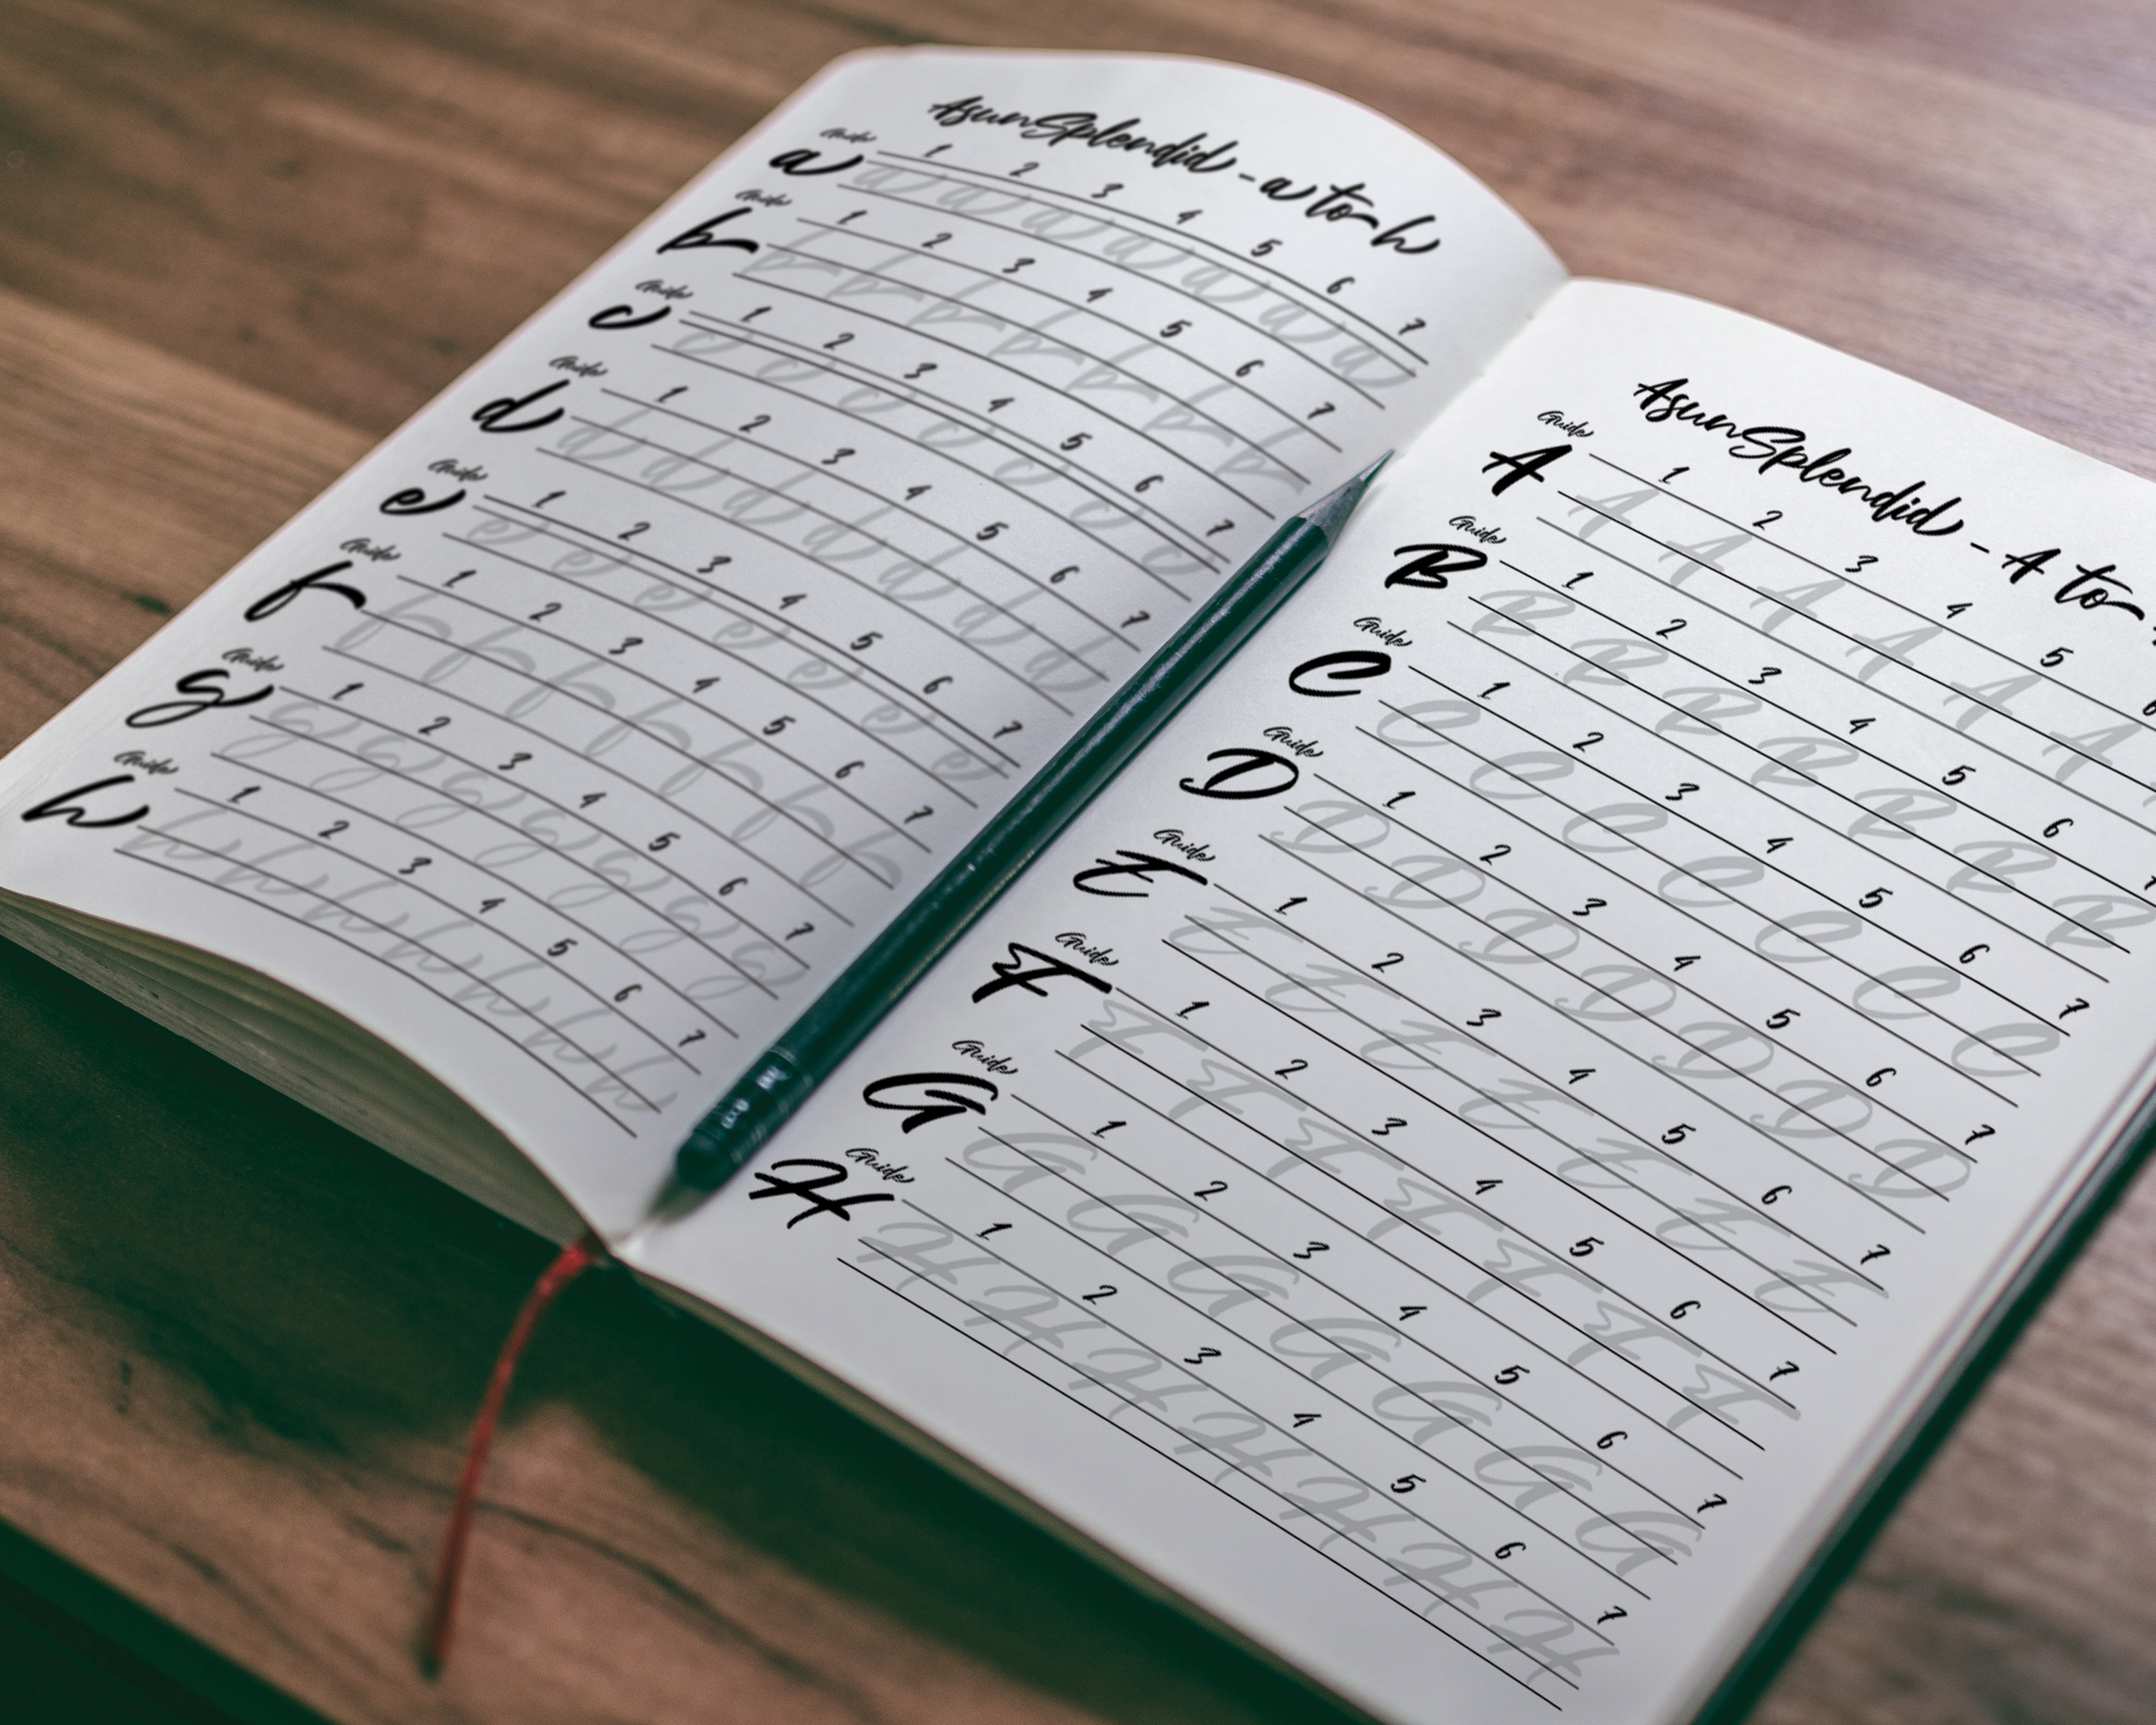 AsunSplendid - a to h
Guide 1 2 3 4 5 6 7
a a a a a a a a
Guide 1 2 3 4 5 6 7
b b b b b b b b
Guide 1 2 3 4 5 6 7
c c c c c c c c
Guide 1 2 3 4 5 6 7
d d d d d d d d
Guide 1 2 3 4 5 6 7
e e e e e e e e
Guide 1 2 3 4 5 6 7
f f f f f f f f
Guide 1 2 3 4 5 6 7
g g g g g g g g
Guide 1 2 3 4 5 6 7
h h h h h h h h
AsunSplendid - A to
Guide 1 2 3 4 5 6
A A A A A A A
Guide 1 2 3 4 5 6 7
B B B B B B B B
Guide 1 2 3 4 5 6 7
C C C C C C C C
Guide 1 2 3 4 5 6 7
D D D D D D D D
Guide 1 2 3 4 5 6 7
E E E E E E E E
Guide 1 2 3 4 5 6 7
F F F F F F F F
Guide 1 2 3 4 5 6 7
G G G G G G G G
Guide 1 2 3 4 5 6 7
H H H H H H H H